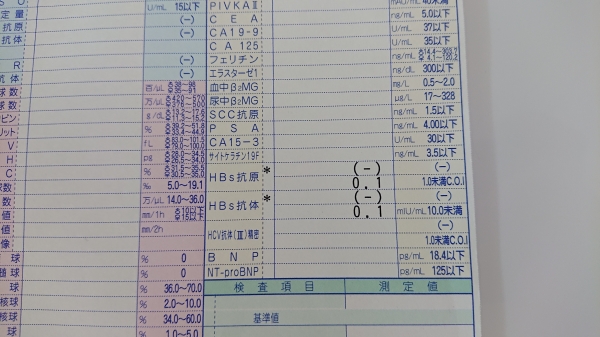 PIVKAⅡ mAU/mL 40未満
定量 U/mL 15以下 CEA ng/mL 5.0以下
抗原 (-) CA19-9 U/mL 37以下
抗体 (-) CA125 U/mL 35以下
フェリチン ng/mL
R (-) エラスターゼ1 ng/dL 300以下
抗体 (-) 血中β2MG mg/L 0.5〜2.0
球数 百/μL 尿中β2MG μg/L 17〜328
球数 万/μL SCC抗原 ng/mL 1.5以下
ビン g/dL PSA ng/mL 4.00以下
リット % CA15-3 U/mL 30以下
V fL サイトケラチン19F ng/mL 3.5以下
H pg HBs抗原 * (-) (-)
C % 0.1 1.0未満C.O.I
球数 ‰ 5.0〜19.1 HBs抗体 * (-) (-)
板数 万/μL 14.0〜36.0 0.1 mIU/mL 10.0未満
値 mm/1h HCV抗体(Ⅲ)精密 (-)
値 mm/2h 1.0未満C.O.I
像 BNP pg/mL 18.4以下
球 % 0 NT-proBNP pg/mL 125以下
髄球 % 0 検査項目 測定値
球 % 36.0〜70.0
核球 % 2.0〜10.0 基準値
核球 % 34.0〜60.0
球 % 1.0〜5.0